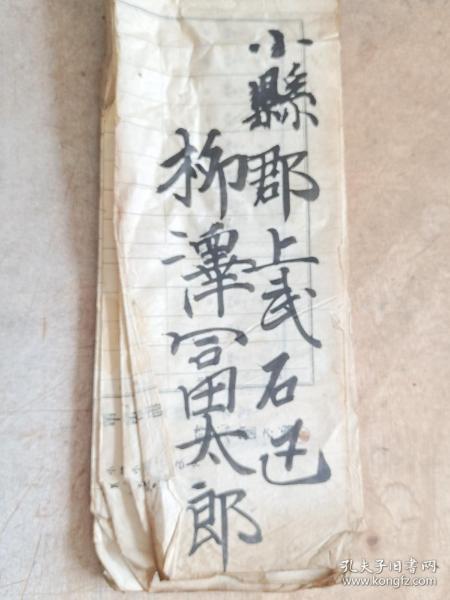 小縣郡上武石
柳澤冨太郎
孔夫子旧书网
www.kongfz.com